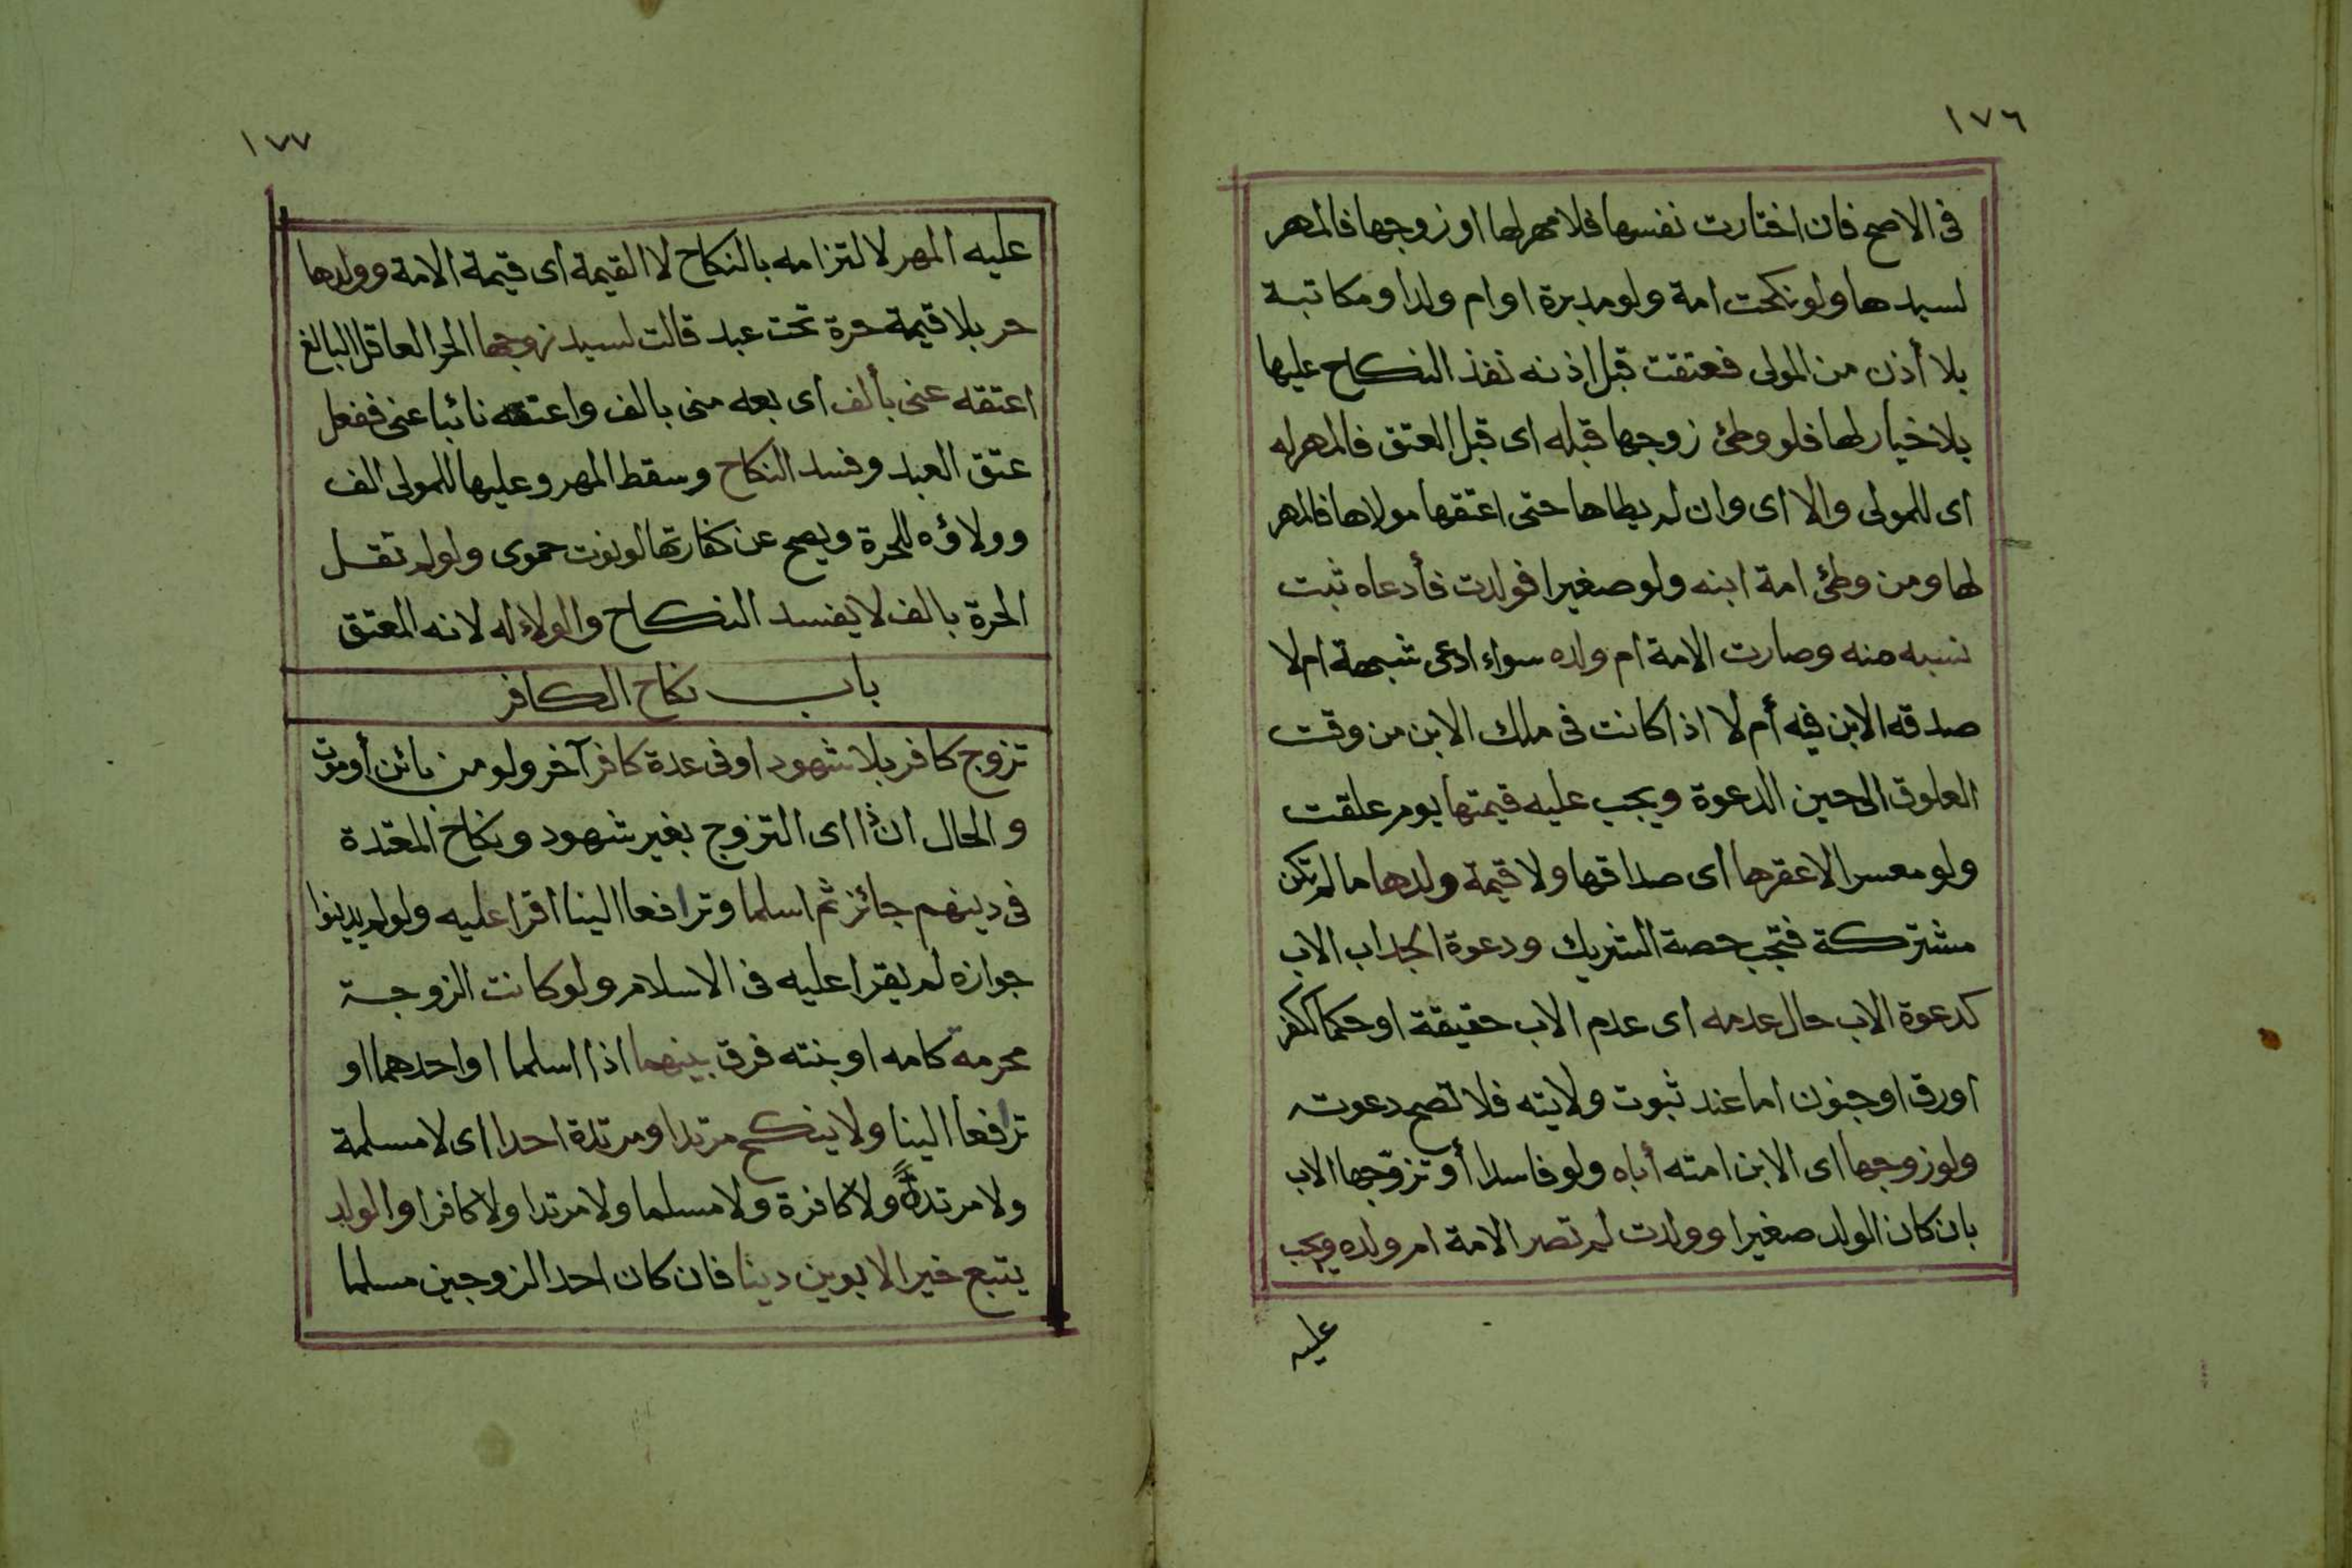 ١٧٦
فى الاصح فان اختارت نفسها فلا مهر لها او زوجها فالمهر
لسيدها ولو نكحت امة ولو مدبرة او ام ولد او مكاتبة
بلا أذن من المولى فعتقت قبل اذنه نفذ النكاح عليها
بلا خيار لها فلو وطئ زوجها قبله اى قبل العتق فالمهر له
اى للمولى والا اى وان لم يطاها حتى اعتقها مولاها فالمهر
لها ومن وطئ امة ابنه ولو صغيرا فولدت فأدعاه ثبت
نسبه منه وصارت الامة ام ولده سواء ادعى شبهة ام لا
صدقه الابن فيه أم لا اذا كانت فى ملك الابن من وقت
العلوق الى حين الدعوة ويجب عليه قيمتها يوم علقت
ولو معسرا لا عقرها اى صداقها ولا قيمة ولدها ما لم تكن
مشتركة فتجب حصة الشريك ودعوة الجد اب الاب
كدعوة الاب حال عدمه اى عدم الاب حقيقة او حكما ككفر
او رق او جنون اما عند ثبوت ولايته فلا تصح دعوته
ولو زوجها اى الابن امته أباه ولو فاسدا أو تزوجها الاب
بان كان الولد صغيرا وولدت لم تصر الامة ام ولده ويجب
عليه
١٧٧
عليه المهر لالتزامه بالنكاح لا القيمة اى قيمة الامة وولدها
حر بلا قيمة حرة تحت عبد قالت لسيد زوجها الحر العاقل البالغ
اعتقه عنى بألف اى بعه منى بالف واعتقه نائبا عنى ففعل
عتق العبد وفسد النكاح وسقط المهر وعليها للمولى الف
وولاؤه للحرة ويصح عن كفارتها لو نوت حموى ولو لم تقل
الحرة بالف لا يفسد النكاح والولاء له لانه المعتق
باب نكاح الكافر
تزوج كافر بلا شهود او فى عدة كافر آخر ولو من بائن أو موت
والحال ان ذا اى التزوج بغير شهود ونكاح المعتدة
فى دينهم جائز ثم اسلما وترافعا الينا اقرا عليه ولو لم يدينوا
جوازه لم يقرا عليه فى الاسلام ولو كانت الزوجة
محرمة كامه او بنته فرق بينهما اذا اسلما او احدهما او
ترافعا الينا ولا ينكح مرتد او مرتدة احدا اى لا مسلمة
ولا مرتدة ولا كافرة ولا مسلما ولا مرتدا ولا كافرا والولد
يتبع خير الابوين دينا فان كان احد الزوجين مسلما